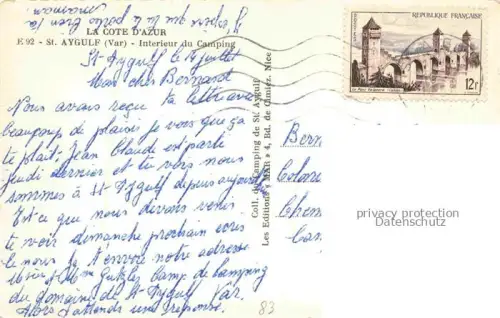 J'espère que tu la porte bien ta
maman
LA COTE D'AZUR
E 92 - St. AYGULF (Var) - Interieur du Camping
St Aygulf le 14 juillet
Mon cher Bernard
Nous avons reçu ta lettre avec
beaucoup de plaisir je vois que ça
te plait. Jean Claude est parti
jeudi dernier et tu vois nous
sommes à St Aygulf depuis aujourd
Est ce que nous devons venir
te voir dimanche prochain écris
le nous je t'envoie notre adresse
Mr Mme Camp de Camping
du domaine de St Aygulf Var.
Alors j'attends une réponse.
83
Coll. du Camping de St. Aygulf
Les Editions "MAR" 4, Bd. de Cimiez, Nice
REPUBLIQUE FRANÇAISE
12F
Bern
Colonie
Chem
Can
privacy protection
Datenschutz